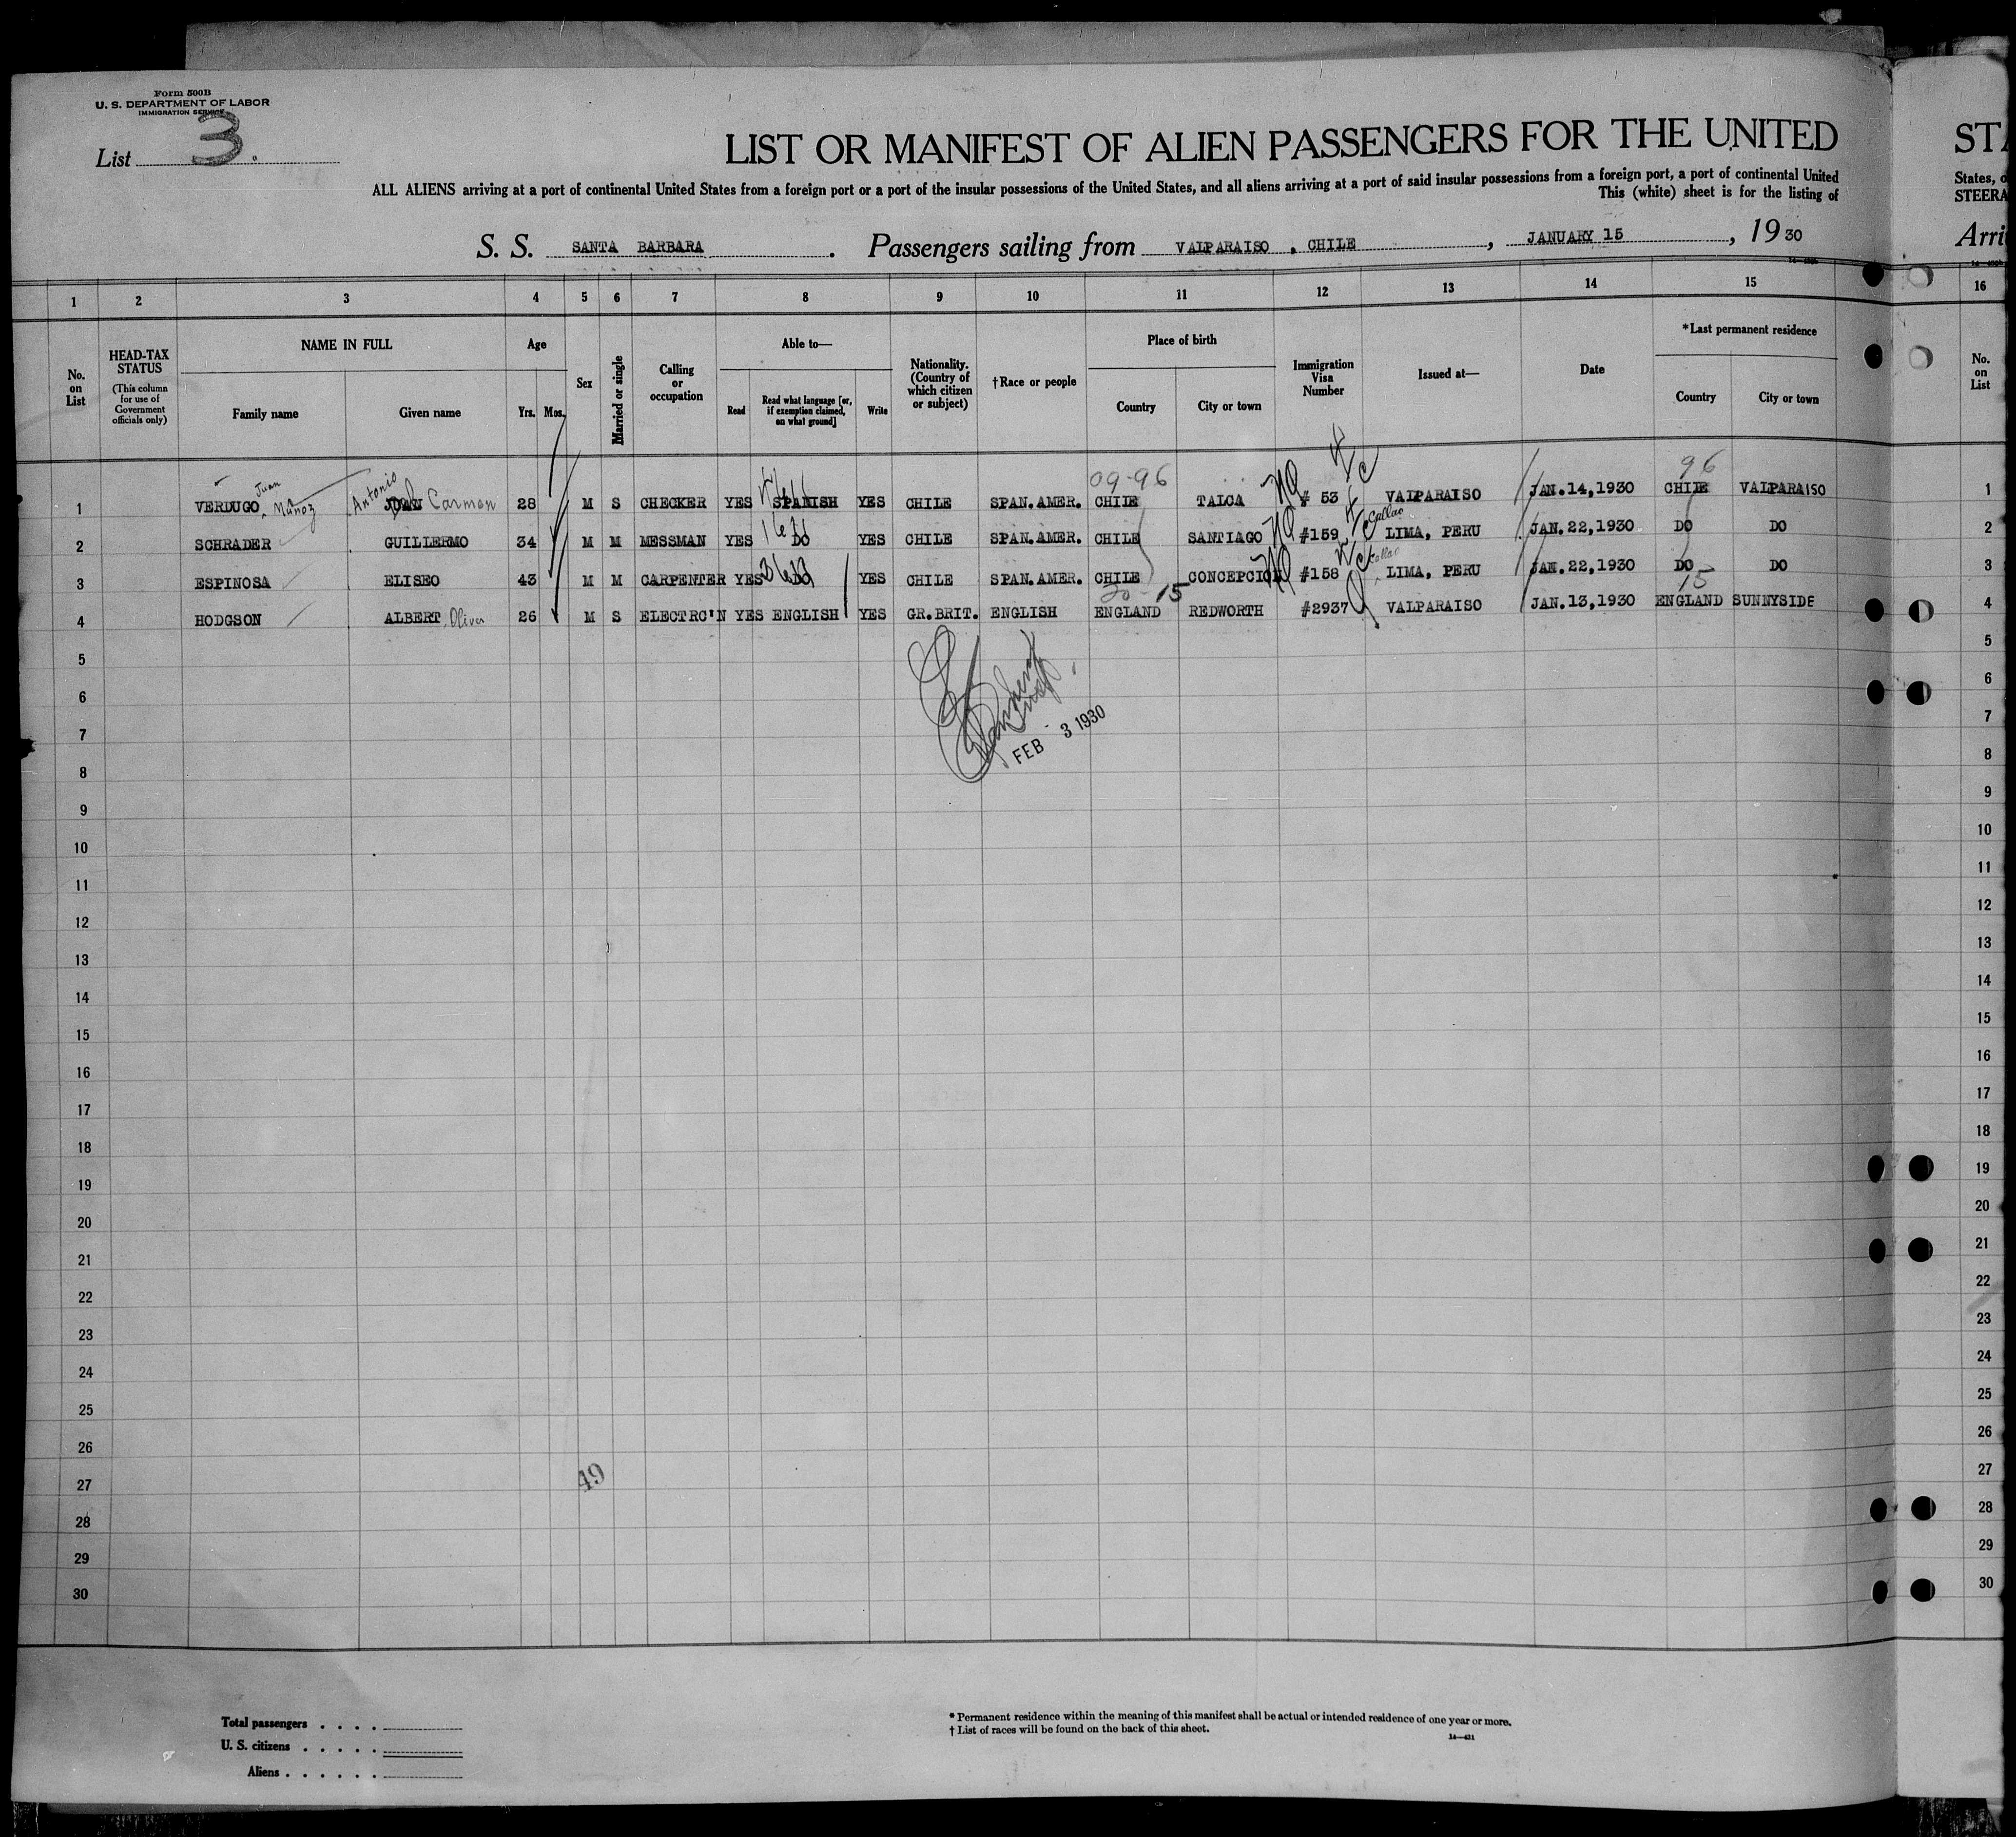 Form 500B
U. S. DEPARTMENT OF LABOR
IMMIGRATION SERVICE
List 3.
LIST OR MANIFEST OF ALIEN PASSENGERS FOR THE UNITED
ALL ALIENS arriving at a port of continental United States from a foreign port or a port of the insular possessions of the United States, and all aliens arriving at a port of said insular possessions from a foreign port, a port of continental United
This (white) sheet is for the listing of
S. S. SANTA BARBARA. Passengers sailing from VALPARAISO, CHILE, JANUARY 15, 1930
STA
States, o
STEERA
Arri
1 2 3 4 5 6 7 8 9 10 11 12 13 14 15 16
No. on List
HEAD-TAX STATUS
(This column for use of Government officials only)
NAME IN FULL
Family name
Given name
Age
Yrs. Mos.
Sex
Married or single
Calling or occupation
Able to—
Read
Read what language [or, if exemption claimed, on what ground]
Write
Nationality. (Country of which citizen or subject)
†Race or people
Place of birth
Country
City or town
Immigration Visa Number
Issued at—
Date
*Last permanent residence
Country
City or town
No. on List
09-96 96
Juan Antonio
1 VERDUGO, Muñoz Carmen 28 M S CHECKER YES SPANISH YES CHILE SPAN.AMER. CHILE TALCA NQ # 53 VALPARAISO JAN.14,1930 CHILE VALPARAISO 1
Callao
2 SCHRADER GUILLERMO 34 M M MESSMAN YES DO YES CHILE SPAN.AMER. CHILE SANTIAGO NQ #159 LIMA, PERU JAN.22,1930 DO DO 2
Callao
3 ESPINOSA ELISEO 43 M M CARPENTER YES DO YES CHILE SPAN.AMER. CHILE CONCEPCION NQ #158 LIMA, PERU JAN.22,1930 DO DO 3
20-15 15
4 HODGSON ALBERT Oliver 26 M S ELECTRC'N YES ENGLISH YES GR.BRIT. ENGLISH ENGLAND REDWORTH #2937 Q VALPARAISO JAN.13,1930 ENGLAND SUNNYSIDE 4
5 5
6 6
7 7
FEB - 3 1930
8 8
9 9
10 10
11 11
12 12
13 13
14 14
15 15
16 16
17 17
18 18
19 19
20 20
21 21
22 22
23 23
24 24
25 25
26 26
49
27 27
28 28
29 29
30 30
Total passengers . . . .
U. S. citizens . . . . .
Aliens . . . . . .
* Permanent residence within the meaning of this manifest shall be actual or intended residence of one year or more.
† List of races will be found on the back of this sheet.
14—431